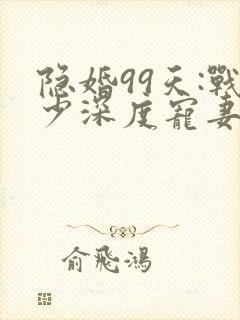 隐婚99天:戰
少深度寵妻
俞飛鴻